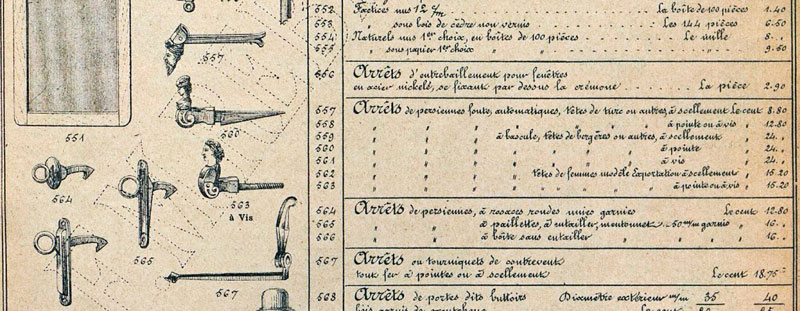 552 Factices nus 12 c/m La boîte de 100 pièces 1.40
553 " sous bois de cèdre non vernis Les 144 pièces 6.50
554 Naturels nus 1er choix, en boîtes de 100 pièces Le mille 8. "
555 " sous papier 1er choix " " 9.50
556 Arrêts d'entrebaillement pour fenêtres
en acier nickelé, se fixant par dessous la crémone La pièce 2.90
557 Arrêts de persiennes fonte, automatiques, têtes de turc ou autres, à scellement Le cent 8.80
558 " " " " " à pointe ou à vis " 12.80
559 " " à bascule, têtes de bergères ou autres, à scellement " 24. "
560 " " " " " à pointe " 24. "
561 " " " " " à vis " 24. "
562 " " " têtes de femmes modèle Exportation à scellement " 15.20
563 " " " " " à pointe ou à vis " 15.20
564 Arrêts de persiennes, à rosaces rondes unies garnies Le cent 12.80
565 " " à paillettes, à entailler, mentonnet 50 m/m garnis " 16. "
566 " " à boîte sans entailler " " 16. "
567 Arrêts ou tourniquets de contrevent
tout fer à pointes ou à scellement Le cent 18.75
568 Arrêts de portes dits buttoirs Diamètre extérieur m/m 35 40
Le cent
551
557
560
563
à Vis
564
565
567